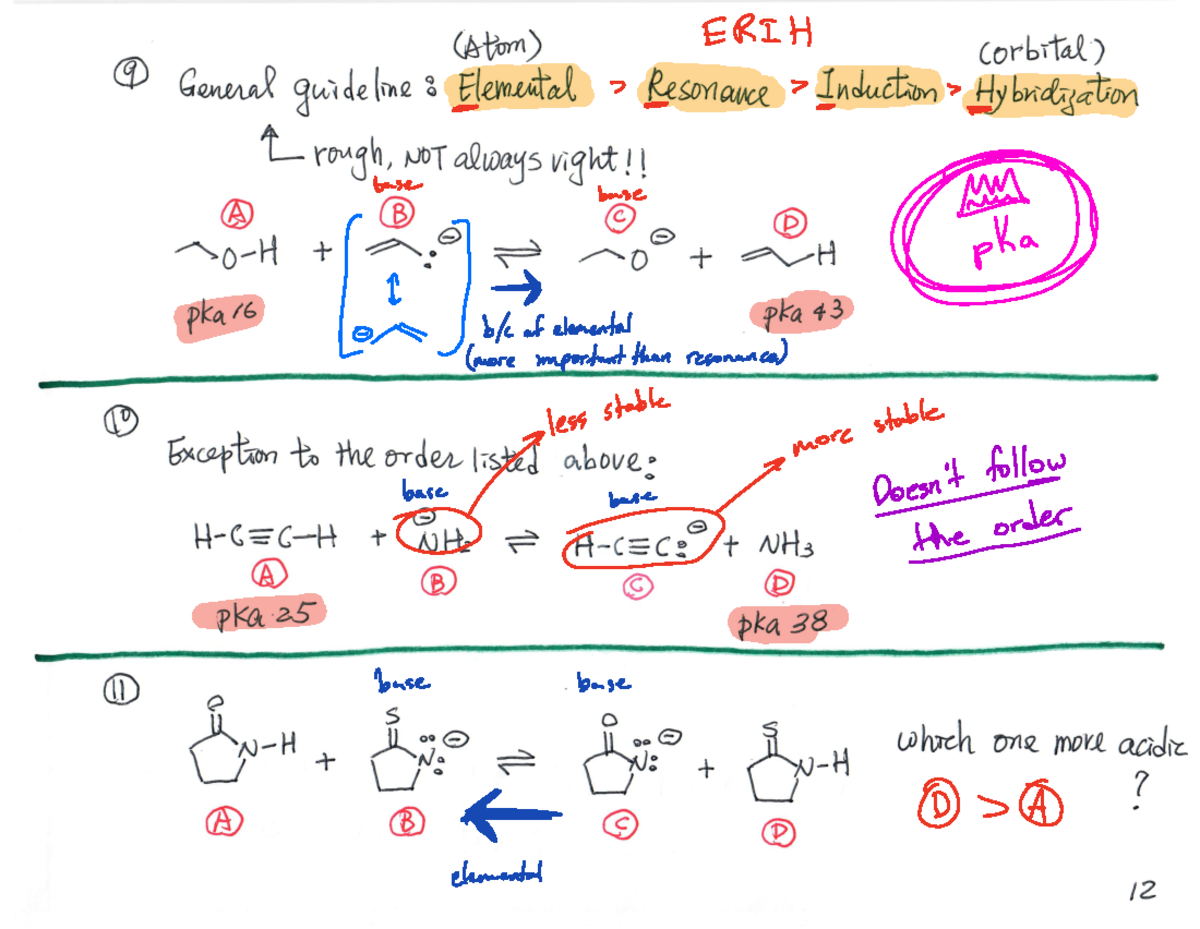 ERIH
(Atom) (orbital)
⑨ General guideline: Elemental > Resonance > Induction > Hybridization
rough, NOT always right!!
base base
Ⓐ Ⓑ Ⓒ Ⓓ
O-H + :⊖ ⇌ O⊖ + H
pka
pka 16 ⊖ b/c of elemental pka 43
(more important than resonance)
⑩ less stable more stable
Exception to the order listed above:
Doesn't follow
the order
base base
H-C≡C-H + ⊖NH₂ ⇌ H-C≡C:⊖ + NH₃
Ⓐ Ⓑ Ⓒ Ⓓ
pka 25 pka 38
⑪ base base
O S O S
N-H + N:⊖ ⇌ N:⊖ + N-H
which one more acidic
?
Ⓐ Ⓑ Ⓒ Ⓓ Ⓓ > Ⓐ
elemental
12